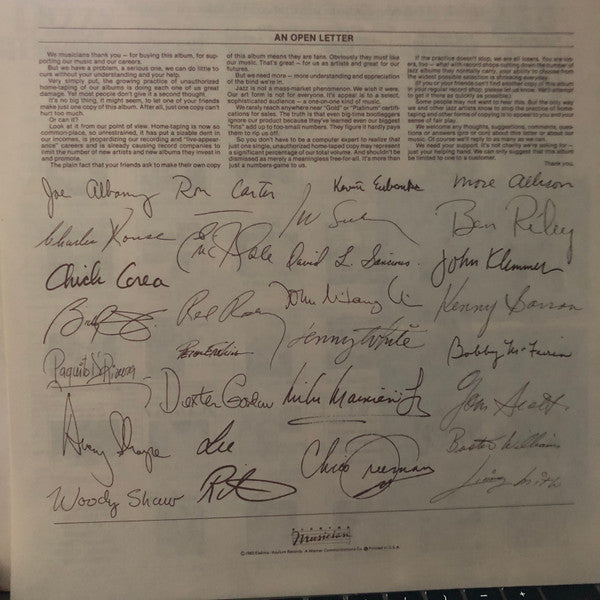 AN OPEN LETTER
We musicians thank you — for buying this album, for sup-
porting our music and our careers.
But we have a problem, a serious one, we can do little to
cure without your understanding and your help.
Very simply put, the growing practice of unauthorized
home-taping of our albums is doing each one of us great
damage. Yet most people don't give it a second thought.
It's no big thing, it might seem, to let one of your friends
make just one copy of this album. After all, just one copy can't
hurt too much.
Or can it?
Look at it from our point of view. Home-taping is now so
common-place, so unrestrained, it has put a sizable dent in
our incomes, is jeopardizing our recording and "live-appear-
ance" careers and is already causing record companies to
limit the number of new artists and new albums they invest in
and promote.
The plain fact that your friends ask to make their own copy
of this album means they are fans. Obviously they must like
our music. That's great — for us as artists and great for our
futures.
But we need more — more understanding and appreciation
of the bind we're in.
Jazz is not a mass-market phenomenon. We wish it were.
Our art form is not for everyone. It's appeal is to a select,
sophisticated audience — a one-on-one kind of music.
We rarely reach anywhere near "Gold" or "Platinum" certifi-
cations for sales. The truth is that even big-time bootleggers
ignore our product because they've learned even our biggest
"hits" add up to too-small numbers. They figure it hardly pays
them to rip us off.
So you don't have to be a computer expert to realize that
just one single, unauthorized home-taped copy may represent
a significant percentage of our total volume. And shouldn't be
dismissed as merely a meaningless free-for-all. It's more than
just a numbers game to us.
If the practice doesn't stop, we are all losers. You are los-
ers, too — what with record shops cutting down the number of
jazz albums they normally carry, your ability to choose from
the widest possible selection is shrinking everyday.
If you or your friends can't find another copy of this album
in your regular record shop, please let us know. We'll attempt
to get it there as quickly as possible.
Some people may not want to hear this. But the only way
we and other jazz artists know to stop the practice of home-
taping and other forms of copying is to appeal to you and your
sense of fair play.
We welcome any thoughts, suggestions, comments, ques-
tions or answers (pro or con) about this letter or about our
music. For our part, we'll answer as many as we can.
We need your support. It's not charity we're asking for —
just your helping hand. We can only suggest that this album
be limited to one to a customer.
Thank you.
Joe Albany Ron Carter Kevin Eubanks Mose Allison
Charlie Rouse David L. Ben Riley
Chick Corea John Klemmer
Red Lenny White Kenny Barron
Paquito D'Rivera Peter Erskine Bobby McFerrin
Dexter Gordon Mike Mainieri Jr Tom Scott
Avery Sharpe Lee Chico Freeman Buster Williams
Woody Shaw Rit Jimmy Smith
Musician